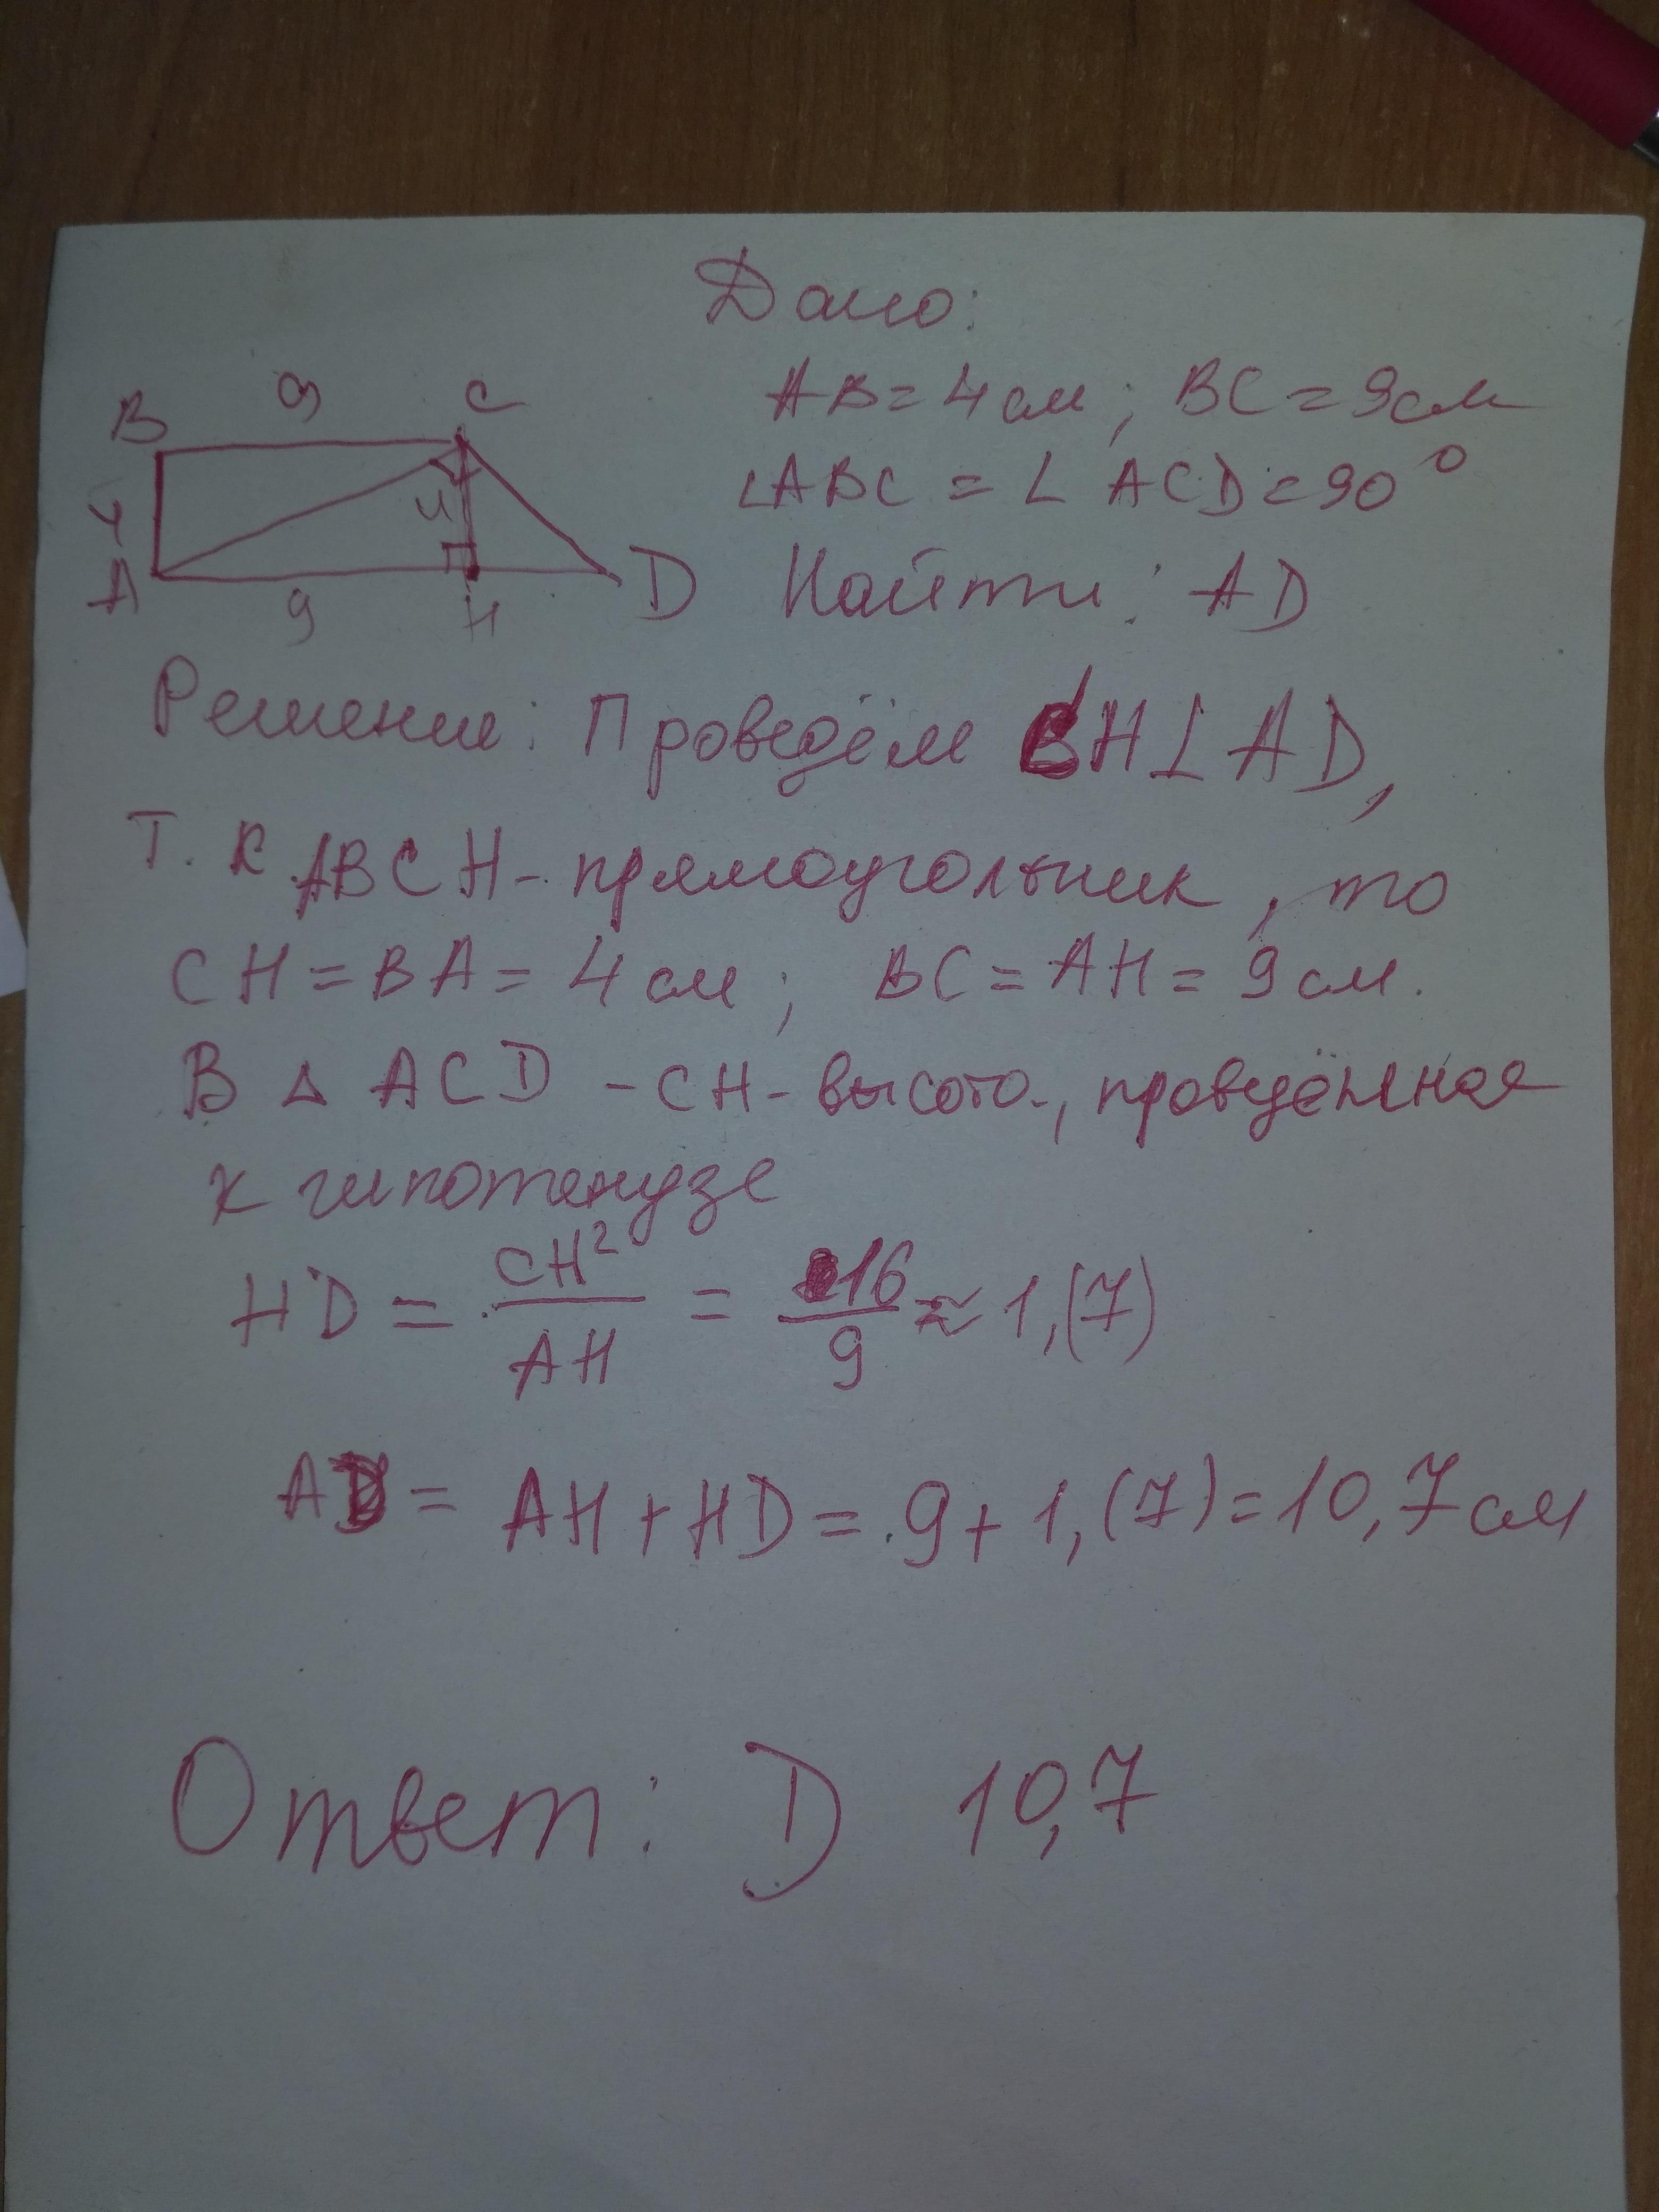 Дано:
B 9 C
AB = 4 см; BC = 9 см
4 4
∠ABC = ∠ACD = 90°
A 9 H D
Найти: AD
Решение: Проведём CH⊥AD,
Т.к ABCH - прямоугольник, то
CH = BA = 4 см; BC = AH = 9 см.
В △ ACD - CH - высота, проведённая
к гипотенузе
HD = CH²/AH = 16/9 ≈ 1,(7)
AD = AH + HD = 9 + 1,(7) = 10,7 см
Ответ: D 10,7